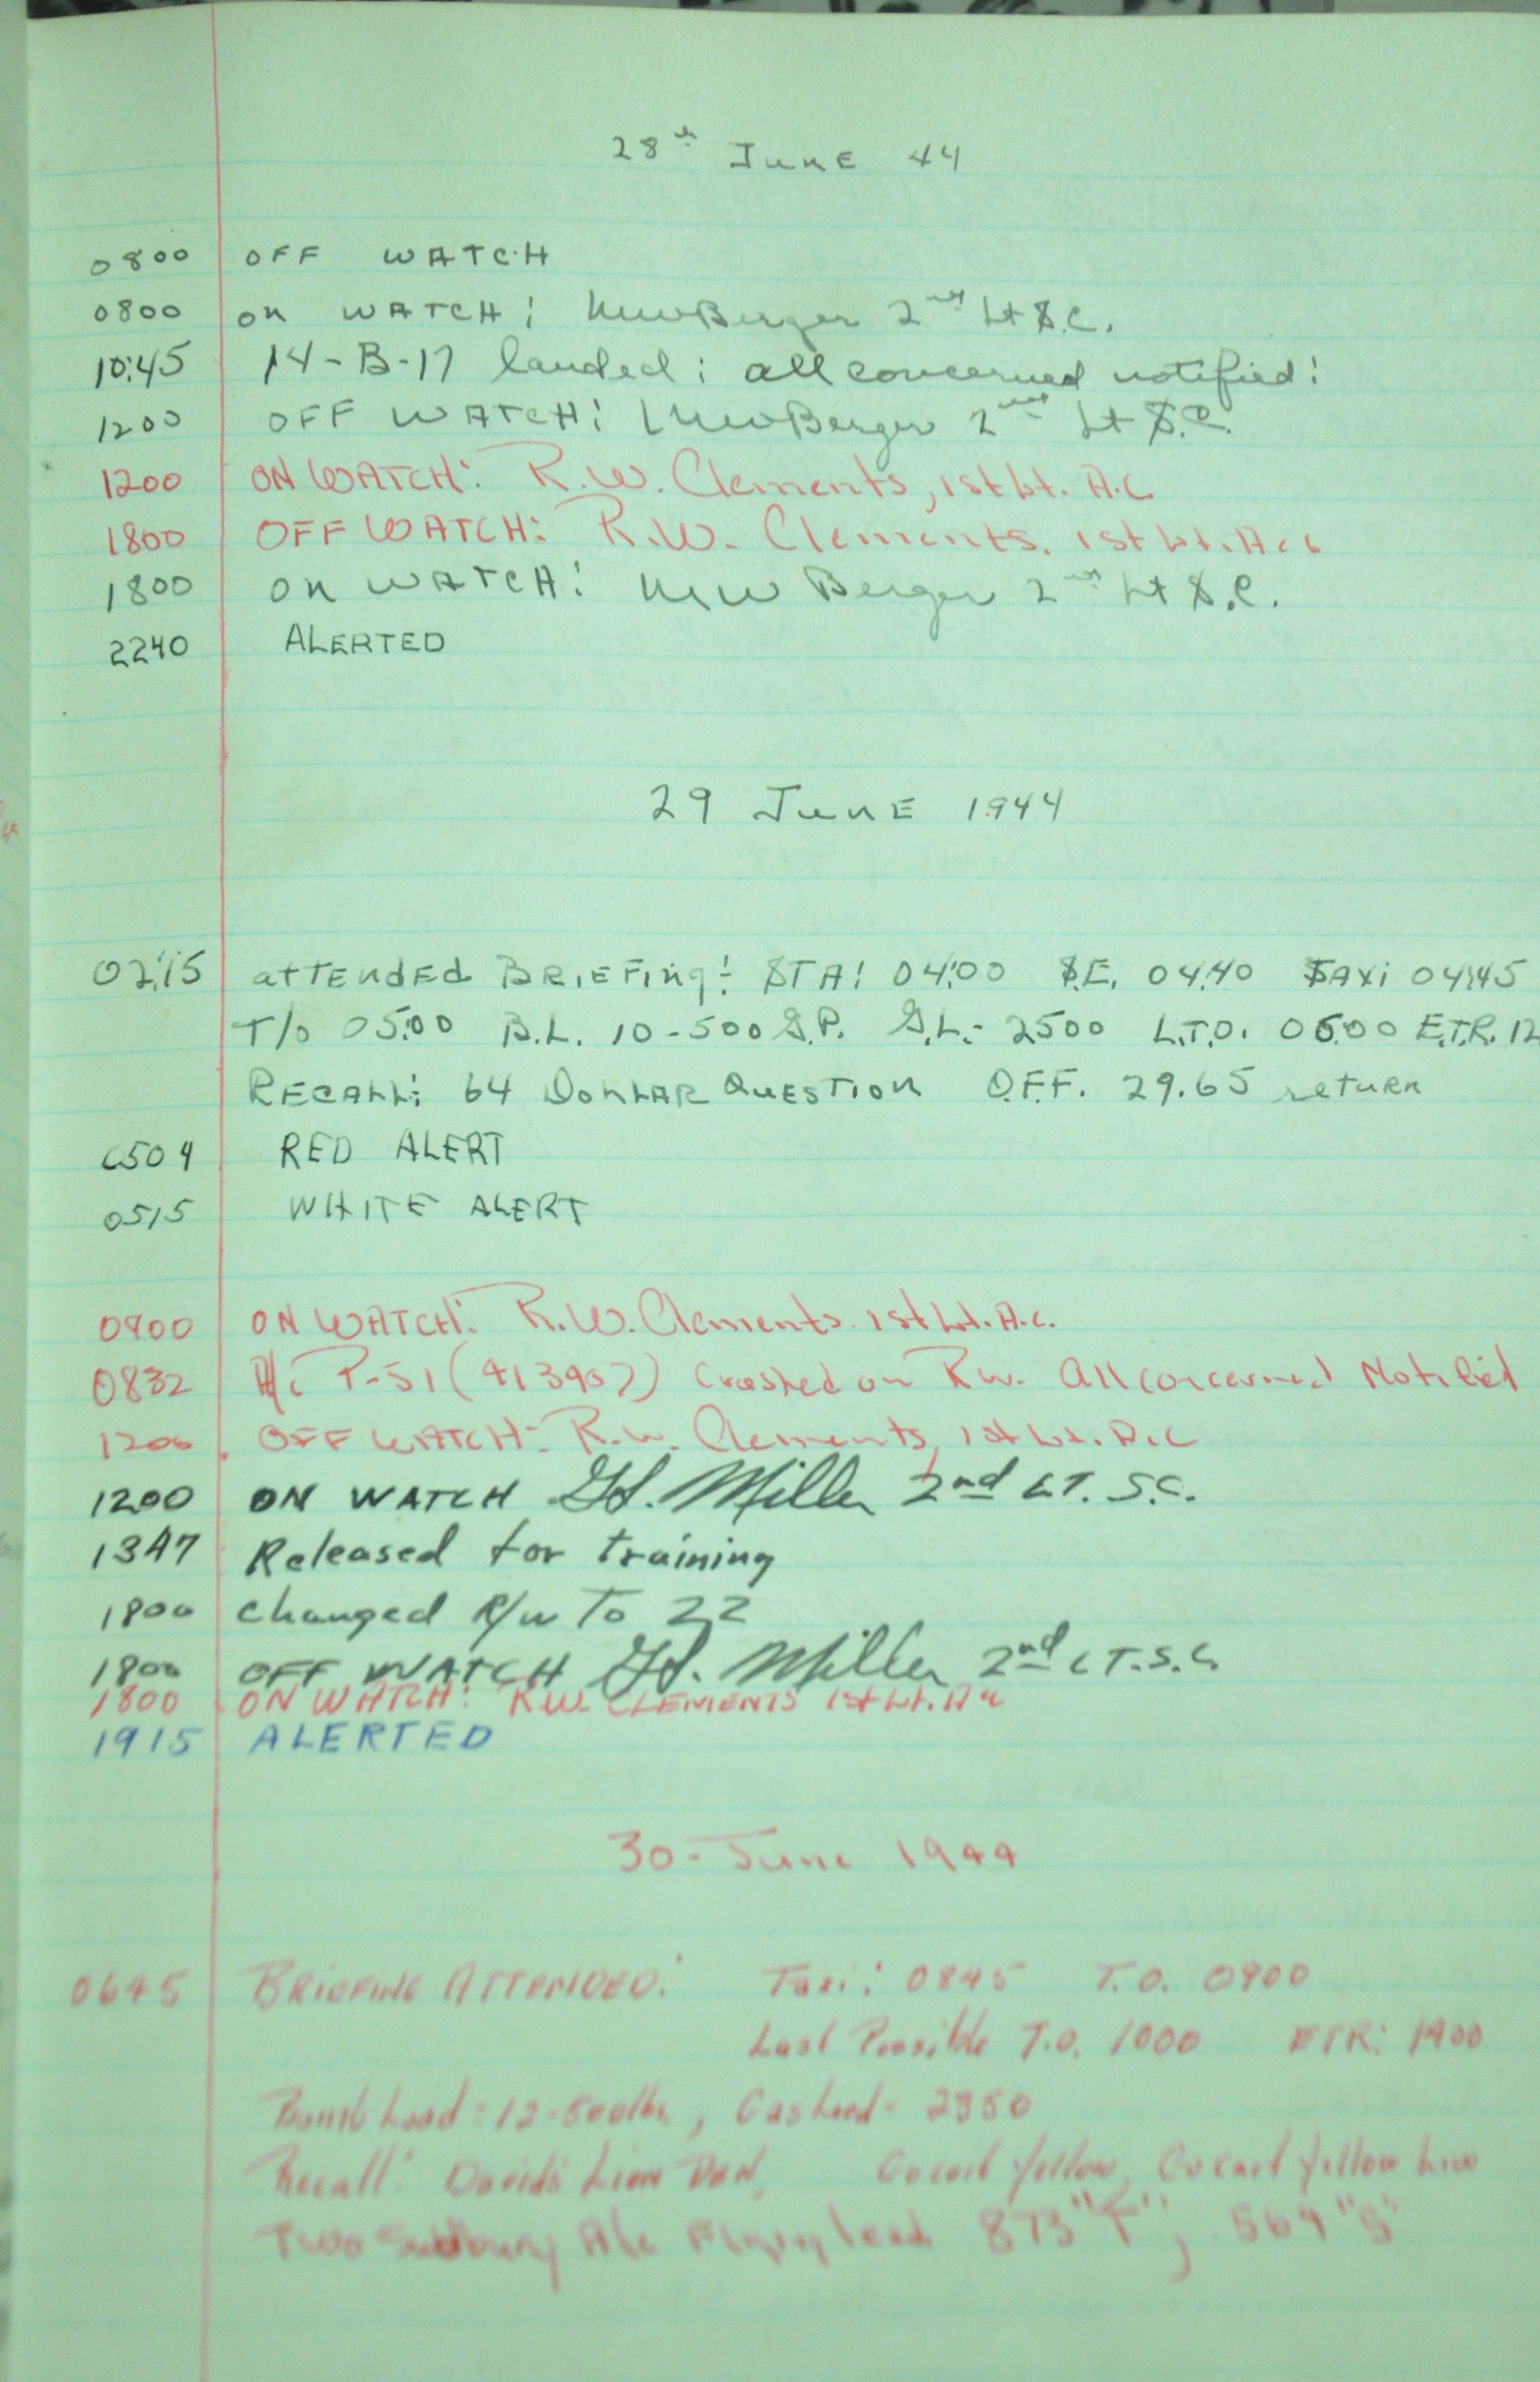 28th June 44
0800 OFF WATCH
0800 ON WATCH: NewBerger 2nd Lt S.C.
10:45 14-B-17 landed: all concerned notified:
1200 OFF WATCH: NewBerger 2nd Lt S.C.
1200 ON WATCH: R.W. Clements, 1st Lt. A.C
1800 OFF WATCH: R.W. Clements, 1st Lt. A.C
1800 ON WATCH: NewBerger 2nd Lt S.C.
2240 ALERTED
29 June 1944
02:15 attended Briefing: STA: 04:00 S.E. 04:40 TAXi 04:45
T/O 05:00 B.L. 10-500 G.P. G.L.- 2500 L.T.O. 06:00 E.T.R. 12
RECALL: 64 DOLLAR QUESTION Q.F.F. 29.65 return
0504 RED ALERT
0515 WHITE ALERT
0900 ON WATCH: R.W. Clements 1st Lt. A.C.
0832 A/c P-51 ( ) Crashed on Rw. All concerned Notified
1200 OFF WATCH: R.W. Clements, 1st Lt. A.C
1200 ON WATCH Miller 2nd LT. S.C.
1347 Released for training
1800 changed R/W To 22
1800 OFF WATCH Miller 2nd LT. S.C.
1800 ON WATCH: R.W. CLEMENTS 1st Lt. A.C
1915 ALERTED
30-June 1944
0645 BRIEFING ATTENDED: Taxi: 0845 T.O. 0900
Last Possible T.O. 1000 ETR: 1400
Bomb Load = 12-500lbs, Gas Load- 2350
Recall: Davids Lion Den, Yellow, Yellow
Two A/c Flying lead 873 "F", 569 "S"